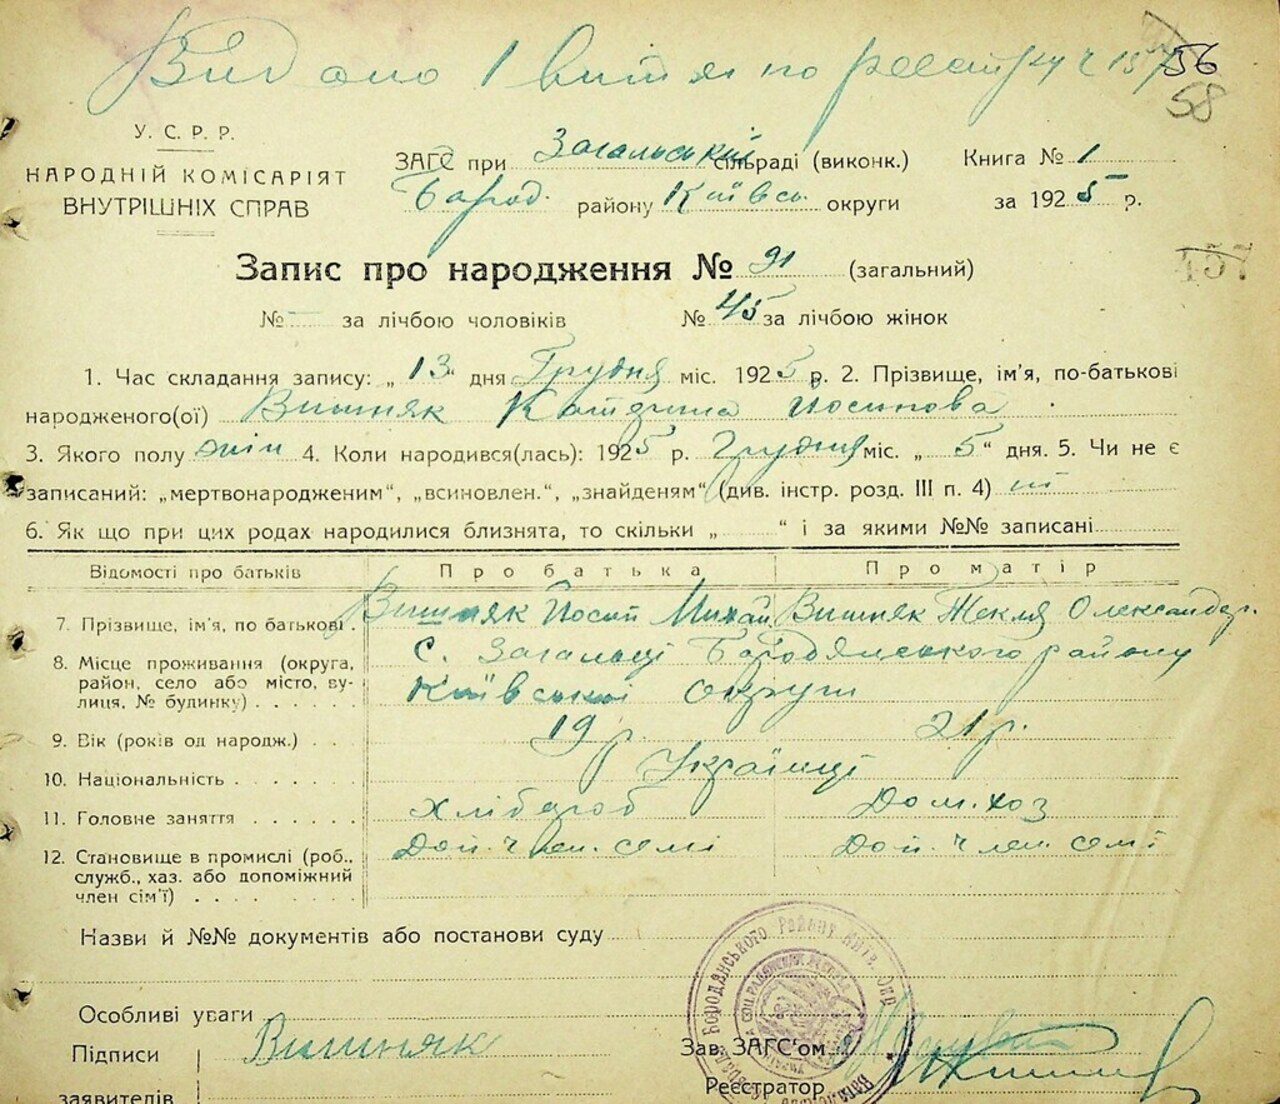 Видано 1 витяг по реєстру ч 15
56
58
У. С. Р. Р.
НАРОДНІЙ КОМІСАРІЯТ
ВНУТРІШНІХ СПРАВ
ЗАГС при Загальській сільраді (виконк.) Книга № 1
Бород. району Київсь. округи за 1925 р.
157
Запис про народження № 91 (загальний)
№ — за лічбою чоловіків № 45 за лічбою жінок
1. Час складання запису: „ 13 “ дня Грудня міс. 1925 р. 2. Прізвище, ім'я, по-батькові
народженого(ої) Вишняк Катерина Йосипова
3. Якого полу жін 4. Коли народився(лась): 1925 р. Грудня міс. „ 5 “ дня. 5. Чи не є
записаний: „мертвонародженим“, „всиновлен.“, „знайденям“ (див. інстр. розд. III п. 4) ні
6. Як що при цих родах народилися близнята, то скільки „ “ і за якими №№ записані
Відомості про батьків Про батька Про матір
7. Прізвище, ім'я, по батькові . Вишняк Йосип Михай Вишняк Текля Олександр.
8. Місце проживання (округа, с. Загальці Бородянського району
район, село або місто, ву- Київської округи
лиця, № будинку) . . . . . .
9. Вік (років од народж.) . . 19 р. 21 р.
10. Національність . . . . . . Українці
11. Головне заняття . . . . . . Хлібороб Дом. хоз
12. Становище в промислі (роб., Доп. член. семі Доп. член. семі
служб., хаз. або допоміжний
член сім'ї) . . . . . .
Назви й №№ документів або постанови суду
Особливі уваги
Підписи Вишняк Зав. ЗАГС'ом
заявителів Реєстратор
Бородянського Району Київ. Окр